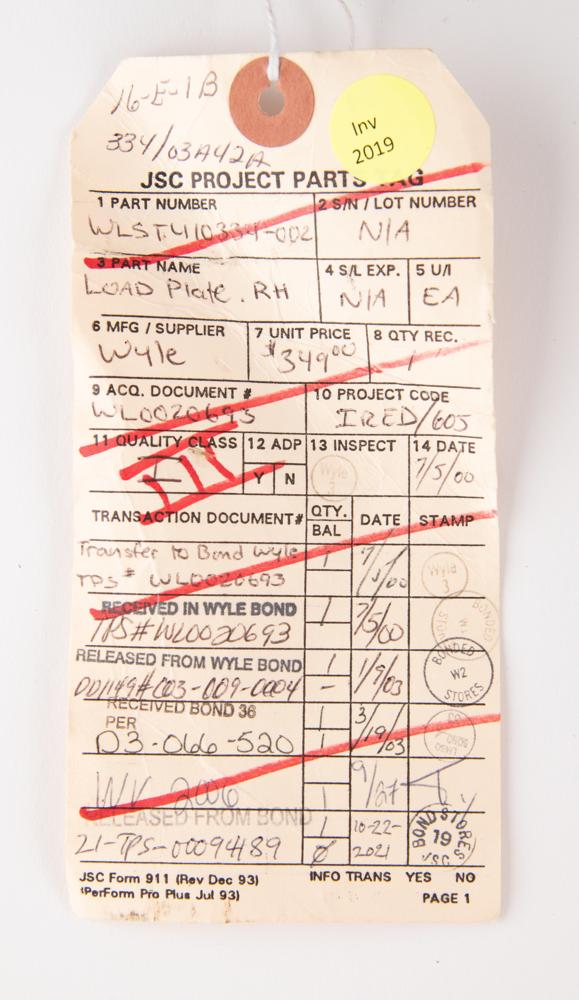 16-E-1B
334/03A42A
Inv
2019
JSC PROJECT PARTS TAG
1 PART NUMBER
2 S/N / LOT NUMBER
WLST410334-002
N/A
3 PART NAME
4 S/L EXP.
5 U/I
LOAD Plate. RH
N/A
EA
6 MFG / SUPPLIER
7 UNIT PRICE
8 QTY REC.
Wyle
$349.00
1
9 ACQ. DOCUMENT #
10 PROJECT CODE
WL0020693
IRED/605
11 QUALITY CLASS
12 ADP
13 INSPECT
14 DATE
Y N
Wyle
7/5/00
TRANSACTION DOCUMENT#
QTY.
BAL
DATE
STAMP
Transfer to Bond Wyle
TPS# WL0020693
1
Wyle
3
RECEIVED IN WYLE BOND
TPS# WL0020693
1
7/5/00
BONDED
RELEASED FROM WYLE BOND
DD1149# C03-009-0004
1
-
1/9/03
BONDED
W2
STORES
RECEIVED BOND 36
PER
D3-066-520
1
1
3/19/03
2006
1
1
9/27
RELEASED FROM BOND
21-TPS-0009489
1
0
10-22-
2021
BOND STORES
19
JSC
JSC Form 911 (Rev Dec 93)
INFO TRANS YES NO
(PerForm Pro Plus Jul 93)
PAGE 1